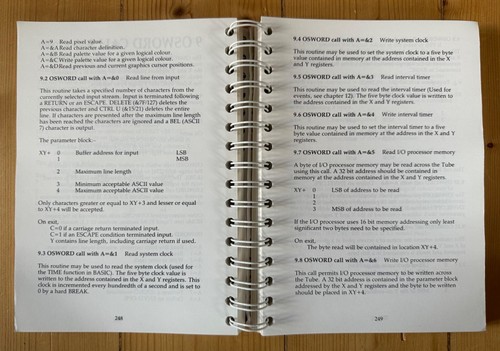 A=9 Read pixel value.
A=&A Read character definition.
A=&B Read palette value for a given logical colour.
A=&C Write palette value for a given logical colour.
A=&D Read previous and current graphics cursor positions.
9.2 OSWORD call with A=&0 Read line from input
This routine takes a specified number of characters from the
currently selected input stream. Input is terminated following
a RETURN or an ESCAPE. DELETE (&7F/127) deletes the
previous character and CTRL U (&15/21) deletes the entire
line. If characters are presented after the maximum line length
has been reached the characters are ignored and a BEL (ASCII
7) character is output.
The parameter block:-
XY+ 0 Buffer address for input LSB
1 MSB
2 Maximum line length
3 Minimum acceptable ASCII value
4 Maximum acceptable ASCII value
Only characters greater or equal to XY+3 and lesser or equal
to XY+4 will be accepted.
On exit,
C=0 if a carriage return terminated input.
C=1 if an ESCAPE condition terminated input.
Y contains line length, including carriage return if used.
9.3 OSWORD call with A=&1 Read system clock
This routine may be used to read the system clock (used for
the TIME function in BASIC). The five byte clock value is
written to the address contained in the X and Y registers. This
clock is incremented every hundredth of a second and is set to
0 by a hard BREAK.
248
9.4 OSWORD call with A=&2 Write system clock
This routine may be used to set the system clock to a five byte
value contained in memory at the address contained in the X
and Y registers.
9.5 OSWORD call with A=&3 Read interval timer
This routine may be used to read the interval timer (Used for
events, see chapter 12). The five byte clock value is written to
the address contained in the X and Y registers.
9.6 OSWORD call with A=&4 Write interval timer
This routine may be used to set the interval timer to a five
byte value contained in memory at the address in the X and Y
registers.
9.7 OSWORD call with A=&5 Read I/O processor memory
A byte of I/O processor memory may be read across the Tube
using this call. A 32 bit address should be contained in
memory at the address contained in the X and Y registers.
XY+ 0 LSB of address to be read
1
2
3 MSB of address to be read
If the I/O processor uses 16 bit memory addressing only least
significant two bytes need to be specified.
On exit,
The byte read will be contained in location XY+4.
9.8 OSWORD call with A=&6 Write I/O processor memory
This call permits I/O processor memory to be written across
the Tube. A 32 bit address is contained in the parameter block
addressed by the X and Y registers and the byte to be written
should be placed in XY+4.
249